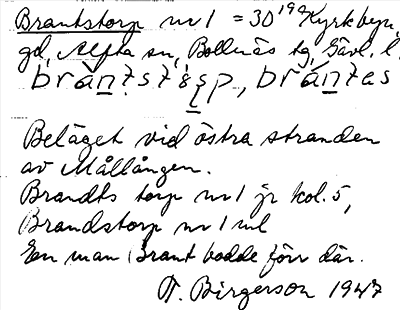 Brantstorp nr 1 = 30¹⁹ Kyrkbyn,
gd, Alfta sn, Bollnäs tg, Gävl. l.
brántst, brántas
Beläget vid östra stranden
av Mållången.
Brandts torp nr 1 jr kol. 5,
Brandstorp nr 1 ml
En man Brant bodde förr där.
Birgerson 1947